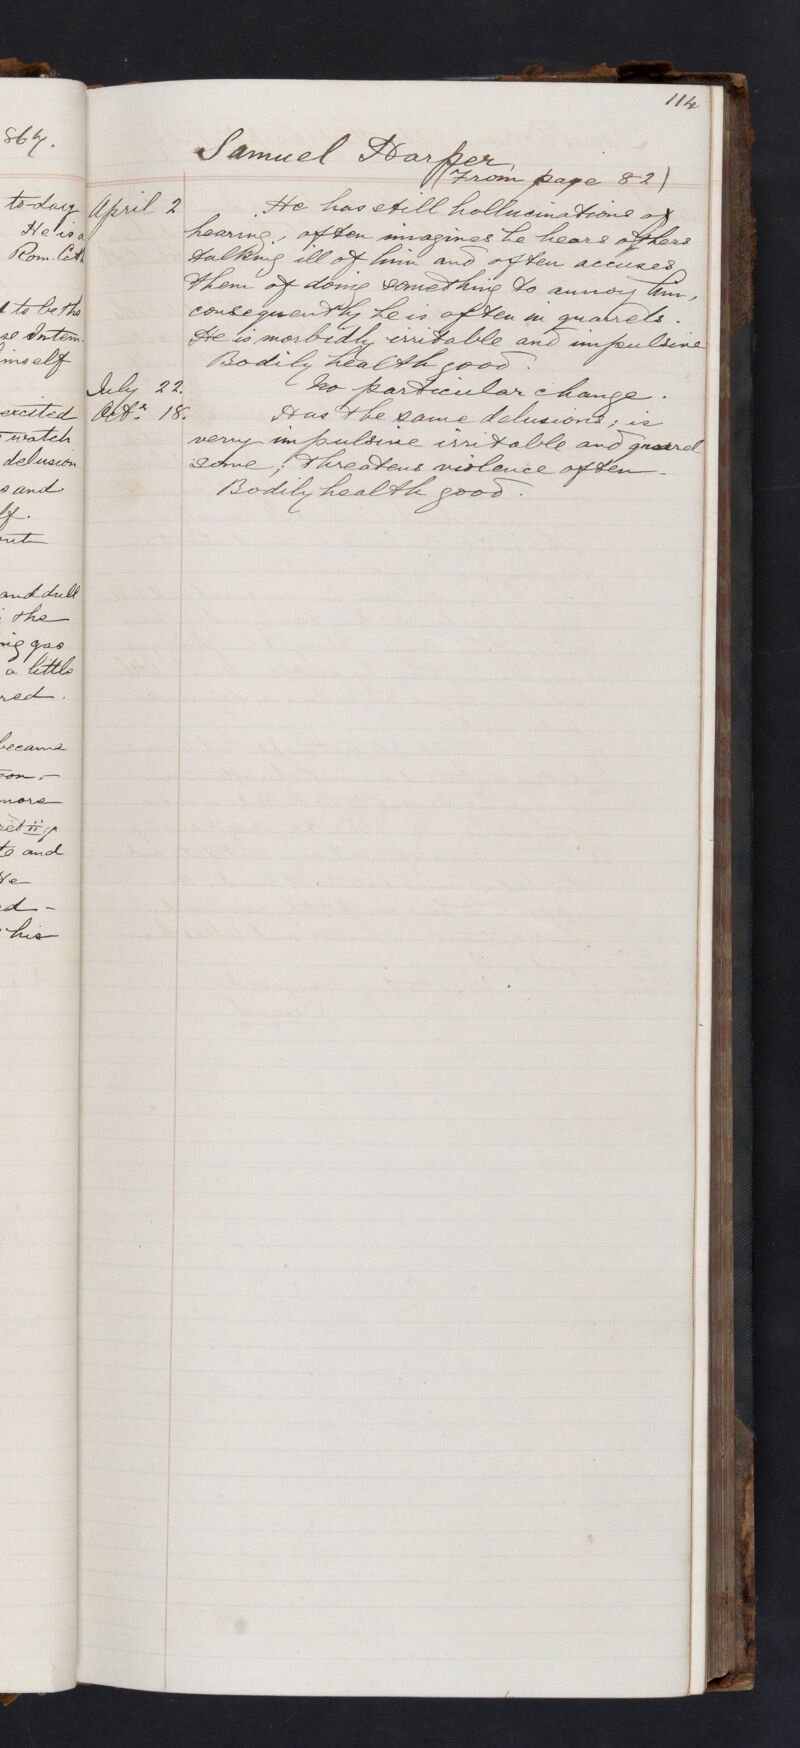 114
Samuel Harper
(From page 82)
April 2 He has still hallucinations of
hearing, often imagines he hears others
talking ill of him and often accuses
them of doing something to annoy him,
consequently he is often in quarrels.
He is morbidly irritable and impulsive
Bodily health good.
July 22. No particular change.
Octr. 18. Has the same delusions; is
very impulsive irritable and quarrel
some; threatens violence often.
Bodily health good.
to-day
He is a
Rom. Cath
to be the
Intem
imself
excited
watch
delusion
and
and dull
the
gas
a little
red.
became
more
and
his